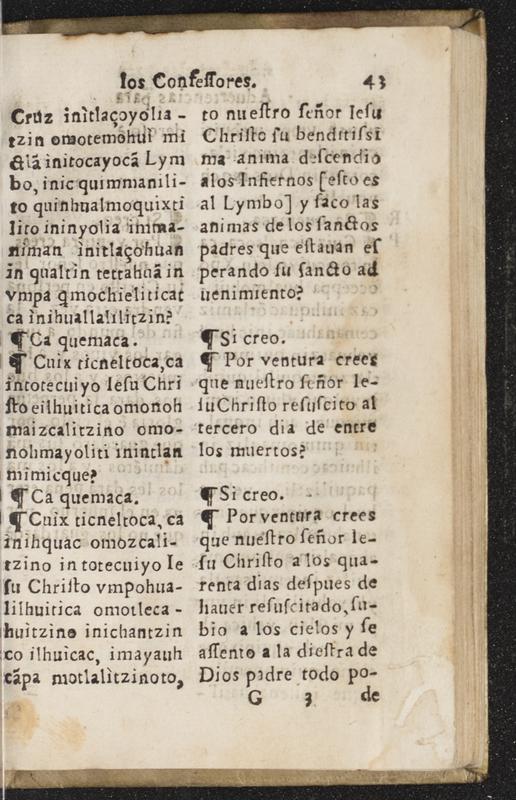 los Confeſſores. 43
Cruz initlaçoyolia-
tzin omotemohui mi
ctlã initocayocã Lym
bo, inic quimmanili-
to quinhualmoquixti
lito ininyolia imma-
niman initlaçohuan
in qualtin tettahuã in
vmpa q̃mochieliticat
ca inihuallalilitzin?
¶ Ca quemaca.
¶ Cuix ticneltoca, ca
intotecuiyo Ieſu Chri
ſto eilhuitica omonoh
maizcalitzino omo-
nohmayoliti inintlan
mimicque?
¶ Ca quemaca.
¶ Cuix ticneltoca, ca
inihquac omozcali-
tzino in totecuiyo Ie
ſu Chriſto vmpohua-
lilhuitica omotleca-
huitzino inichantzin
co ilhuicac, imayauh
cãpa motlalitzinoto,
to nueſtro ſeñor Ieſu
Chriſto ſu benditiſsi
ma anima deſcendio
alos Infiernos [eſto es
al Lymbo] y ſaco las
animas de los ſanctos
padres que eſtauan eſ
perando ſu ſancto ad
uenimiento?
¶ Si creo.
¶ Por ventura crees
que nueſtro ſeñor Ie-
ſuChriſto reſuſcito al
tercero dia de entre
los muertos?
¶ Si creo.
¶ Por ventura crees
que nueſtro ſeñor Ie-
ſu Chriſto a los qua-
renta dias deſpues de
hauer reſuſcitado, ſu-
bio a los cielos y ſe
aſſento a la dieſtra de
Dios padre todo po-
G 3 de